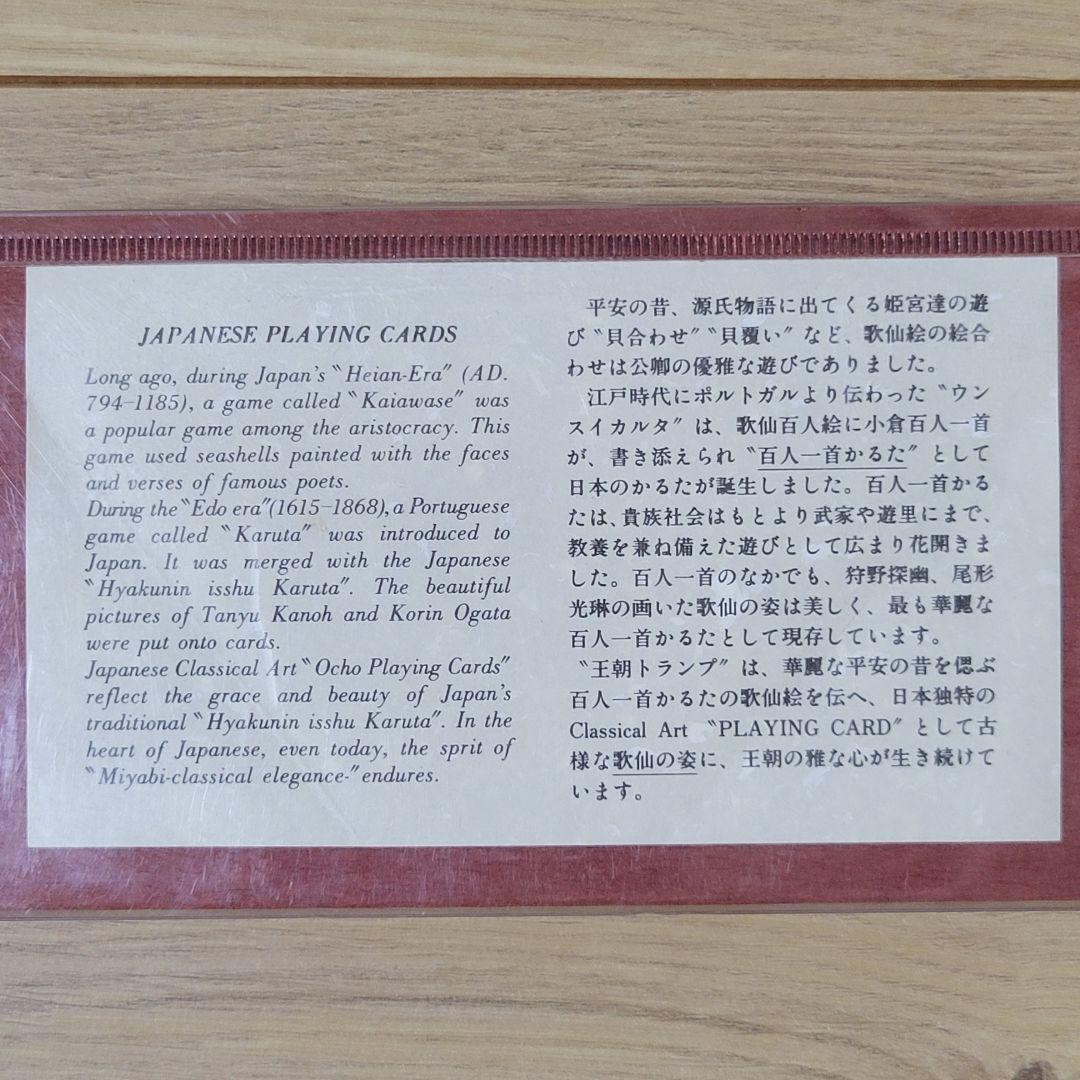 JAPANESE PLAYING CARDS
Long ago, during Japan's〝Heian-Era〞(AD.
794-1185), a game called〝Kaiawase〞was
a popular game among the aristocracy. This
game used seashells painted with the faces
and verses of famous poets.
During the〝Edo era〞(1615-1868), a Portuguese
game called〝Karuta〞was introduced to
Japan. It was merged with the Japanese
〝Hyakunin isshu Karuta〞. The beautiful
pictures of Tanyu Kanoh and Korin Ogata
were put onto cards.
Japanese Classical Art〝Ocho Playing Cards〞
reflect the grace and beauty of Japan's
traditional〝Hyakunin isshu Karuta〞. In the
heart of Japanese, even today, the sprit of
〝Miyabi-classical elegance-〞endures.
平安の昔、源氏物語に出てくる姫宮達の遊
び〝貝合わせ〞〝貝覆い〞など、歌仙絵の絵合
わせは公卿の優雅な遊びでありました。
江戸時代にポルトガルより伝わった〝ウン
スイカルタ〞は、歌仙百人絵に小倉百人一首
が、書き添えられ〝百人一首かるた〞として
日本のかるたが誕生しました。百人一首かる
たは、貴族社会はもとより武家や遊里にまで、
教養を兼ね備えた遊びとして広まり花開きま
した。百人一首のなかでも、狩野探幽、尾形
光琳の画いた歌仙の姿は美しく、最も華麗な
百人一首かるたとして現存しています。
〝王朝トランプ〞は、華麗な平安の昔を偲ぶ
百人一首かるたの歌仙絵を伝へ、日本独特の
Classical Art 〝PLAYING CARD〞として古
様な歌仙の姿に、王朝の雅な心が生き続けて
います。